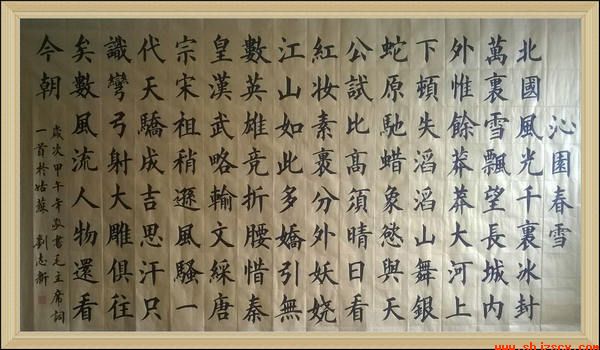 沁園春雪
北國風光千裏冰封
萬裏雪飄望長城内
外惟餘莽莽大河上
下頓失滔滔山舞銀
蛇原馳蜡象慾與天
公試比高須晴日看
紅妆素裹分外妖娆
江山如此多嬌引無
數英雄竞折腰惜秦
皇漢武略輸文綵唐
宗宋祖稍遜風騷一
代天驕成吉思汗只
識彎弓射大雕俱往
矣數風流人物還看
今朝
歲次甲午年書毛主席詞
一首於姑蘇 劉志新
www.sbjzscy.com